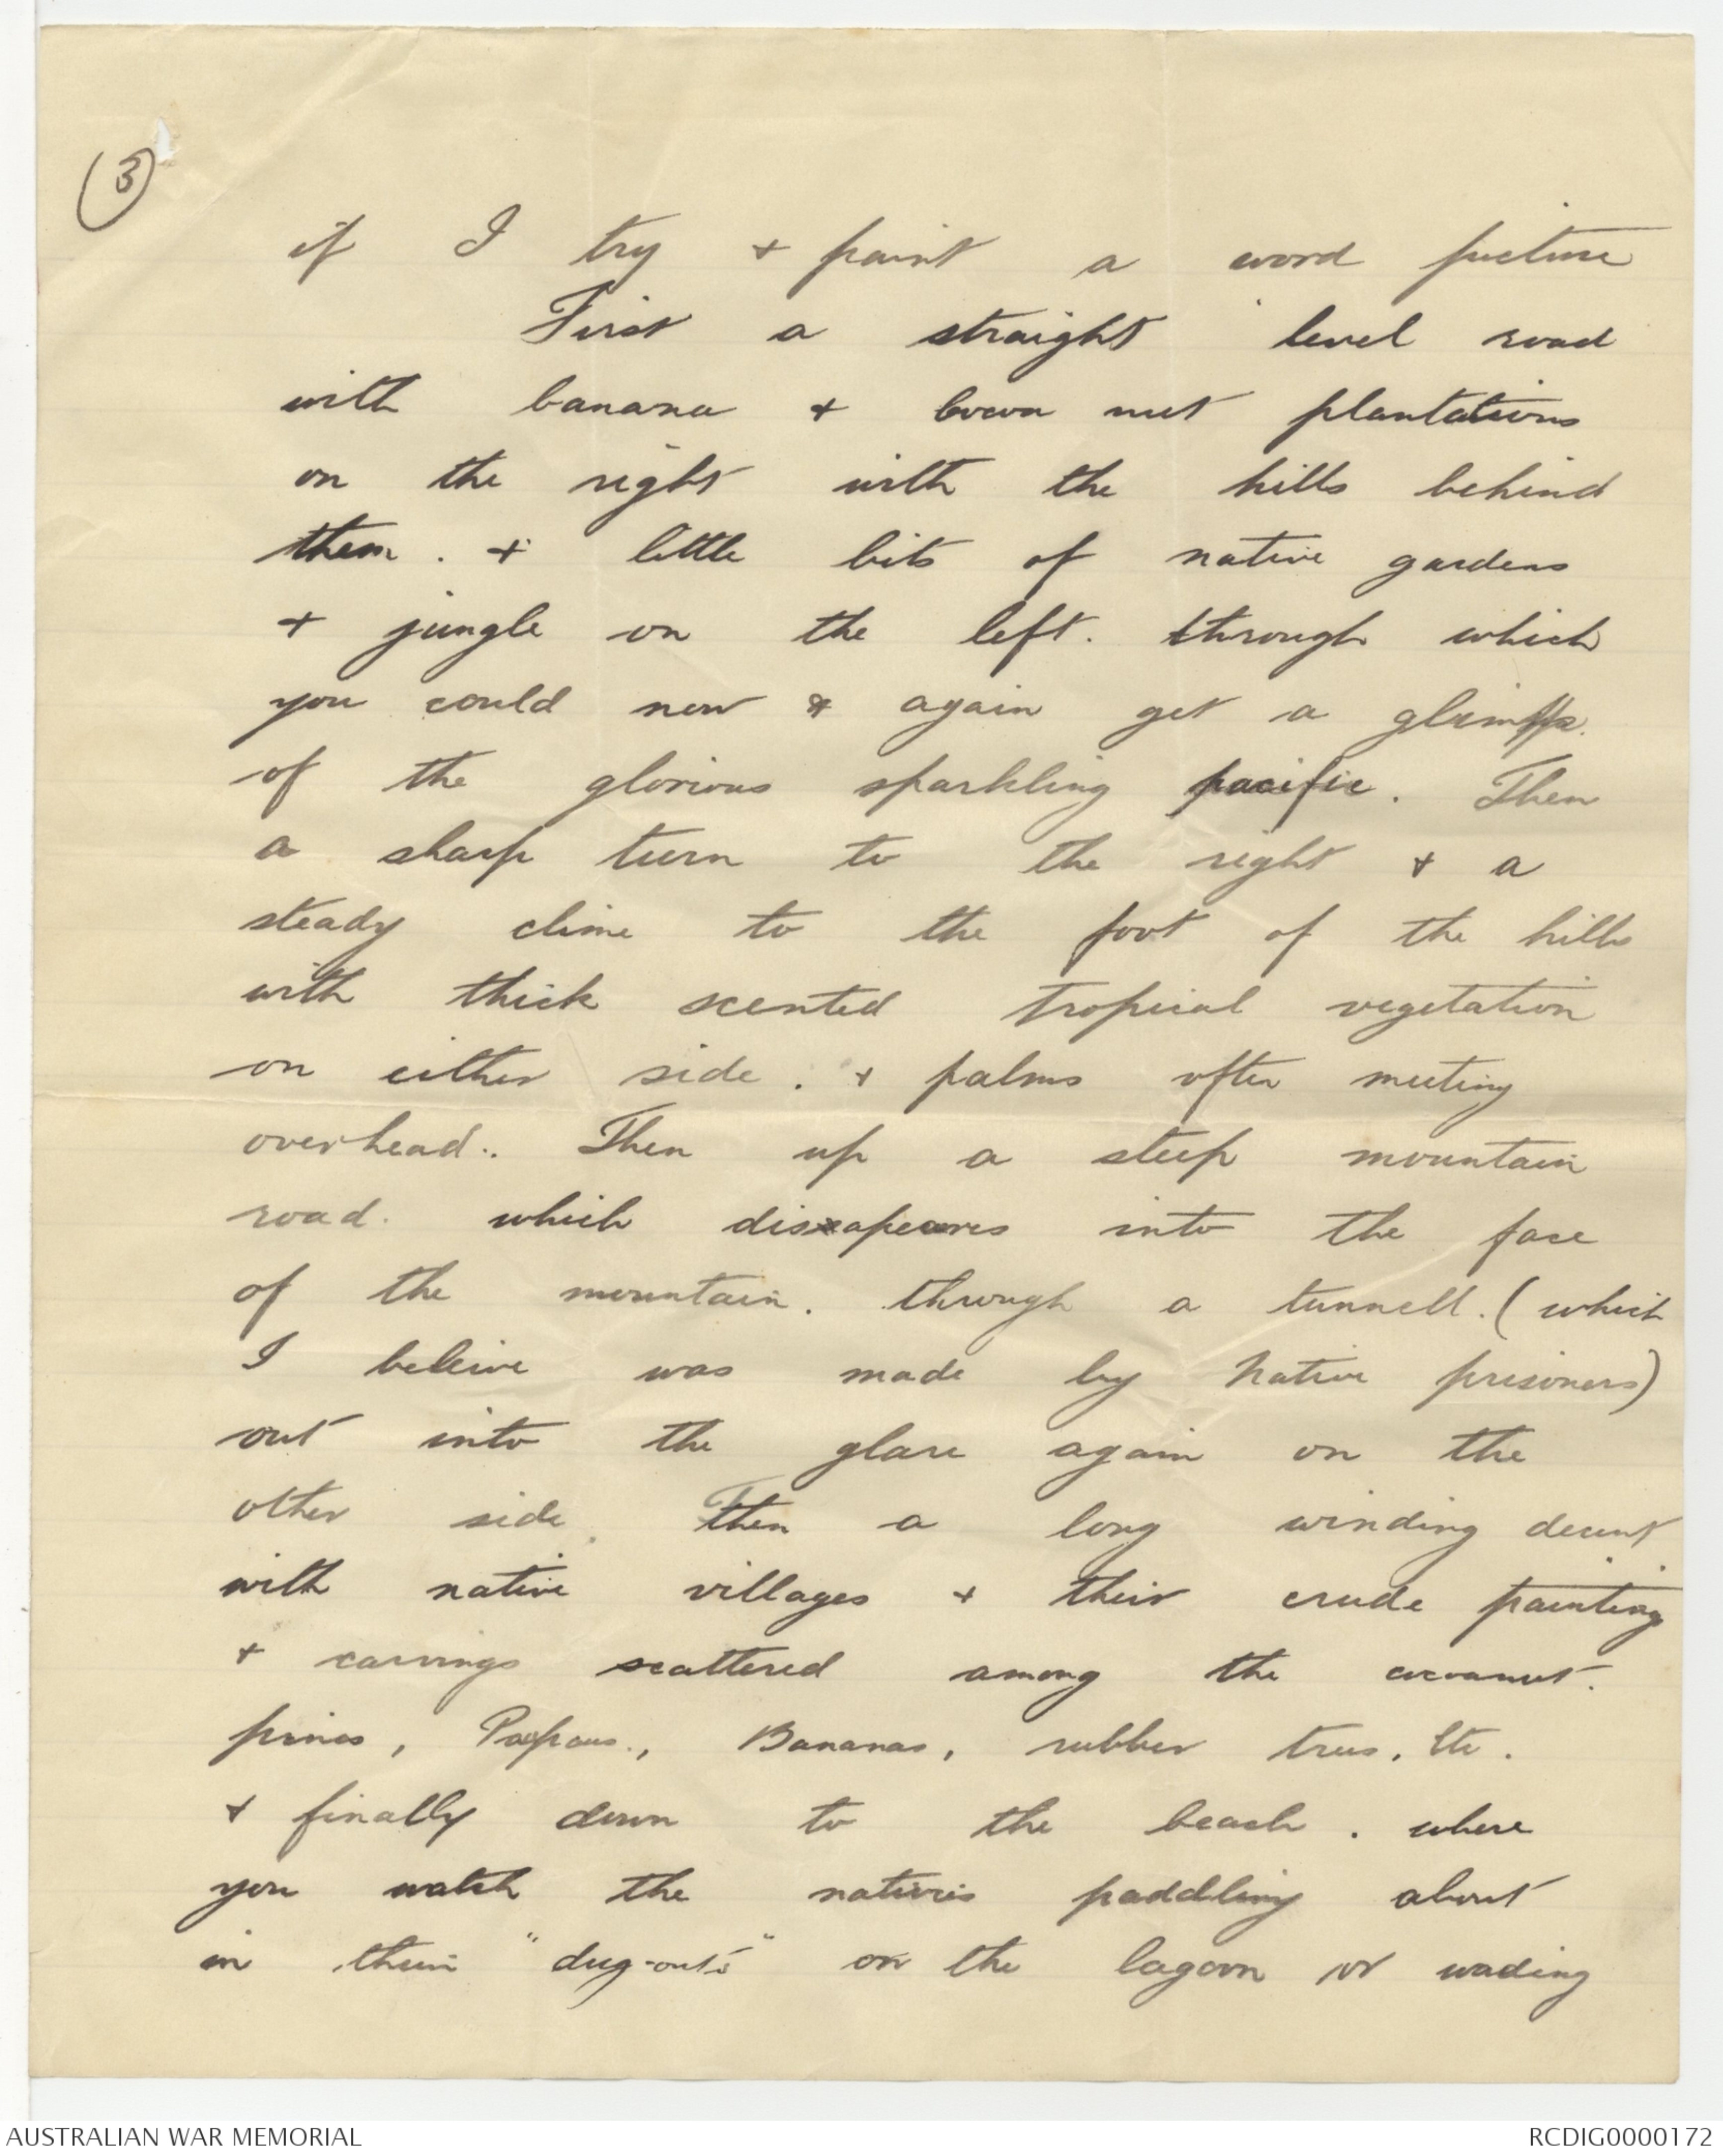 (3)
if I try + paint a word picture
First a straight level road
with banana + cocoa nut plantations
on the right with the hills behind
them. + little bits of native gardens
+ jungle on the left. through which
you could now & again get a
of the glorious sparkling pacific. Then
a sharp turn to the right + a
steady clime to the foot of the hills
with thick scented tropical vegetation
on either side. + palms often meeting
overhead.. Then up a steep mountain
road. which disapeares into the face
of the mountain. through a tunnell. (which
I beleive was made by native prisoners)
out into the glare again on the
other side. Then a long winding decent
with native villages + their crude painting
+ carvings scattered among the cocoanut.
pines, , Bananas, rubber trees, Etc.
+ finally down to the beach. where
you watch the natives paddling about
in their "dug-outs" on the lagoon or wading
AUSTRALIAN WAR MEMORIAL
RCDIG0000172